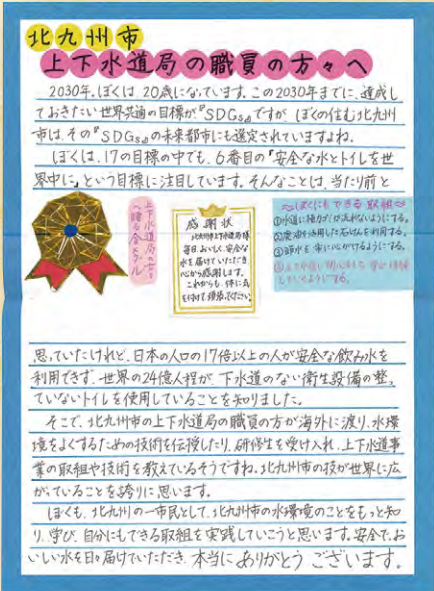 北九州市
上下水道局の職員の方々へ
2030年、ぼくは、20歳になっています。この2030年までに、達成し
ておきたい世界共通の目標が『SDGs』ですが、ぼくの住む北九州
市は、その『SDGs』の未来都市にも選定されていますよね。
ぼくは、17の目標の中でも、6番目の『安全な水とトイレを世
界中に』という目標に注目しています。そんなことは、当たり前と
上下水道局の方
へ贈る金メダル
感謝状
北九州市上下水道局様
毎日、おいしく、安全な
水を届けていただき
心から感謝します。
これからも、体に気
を付けて、頑張ってください。
〜ぼくにもできる取組〜
①水道に極力ゴミが流れないようにする。
②廃油を活用した石けんを利用する。
③節水を常に心がけるようにする。
思っていたけれど、日本の人口の17倍以上の人が安全な飲み水を
利用できず、世界の24億人程が、下水道のない衛生設備の整っ
ていないトイレを使用していることを知りました。
そこで、北九州市の上下水道局の職員の方が海外に渡り、水環
境をよくするための技術を伝授したり、研修生を受け入れ、上下水道事
業の取組や技術を教えているそうですね。北九州市の技が世界に広
がっていることを誇りに思います。
ぼくも、北九州の一市民として、北九州市の水環境のことをもっと知
り、学び、自分にもできる取組を実践していこうと思います。安全で、お
いしい水を日々届けていただき、本当にありがとうございます。